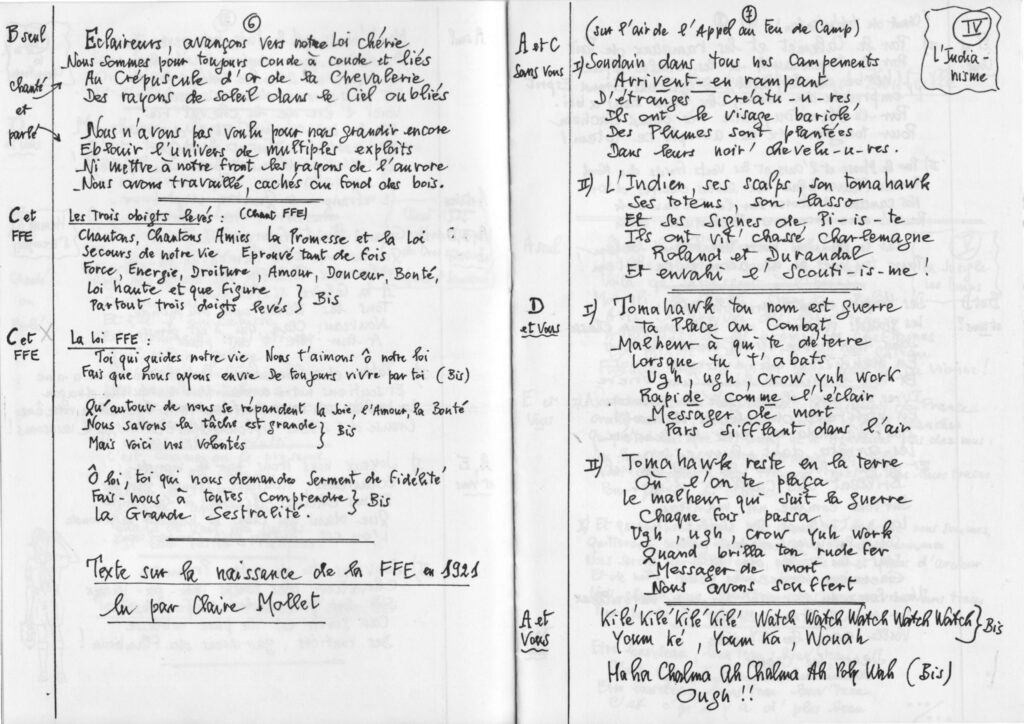 6
B seul
Eclaireurs, avançons vers notre Loi chérie
Nous sommes pour toujours coude à coude et liés
chanté
Au Crépuscule d'Or de la Chevalerie
et
Des rayons de soleil dans le Ciel oubliés
parlé
Nous n'avons pas voulu pour nous grandir encore
Eblouir l'univers de multiples exploits
Ni mettre à notre front les rayons de l'aurore
Nous avons travaillé, cachés au fond des bois.
C et
FFE
Les Trois doigts levés : (Chant FFE)
Chantons, Chantons Amies la Promesse et la Loi
Secours de notre Vie Eprouvé tant de fois
Force, Energie, Droiture, Amour, Douceur, Bonté,
Loi haute et que figure
Partout trois doigts levés } Bis
C et
FFE
La Loi FFE :
Toi qui guides notre vie Nous t'aimons ô notre loi
Fais que nous ayons envie De toujours vivre par toi (Bis)
Qu'autour de nous se répandent la Joie, l'Amour, la Bonté
Nous savons la tâche est grande } Bis
Mais Voici nos Volontés
Ô loi, toi qui nous demandes Serment de fidélité
Fais-nous à toutes comprendre } Bis
La Grande Sestralité.
Texte sur la naissance de la FFE en 1921
lu par Claire Mollet
7
IV
L'India-
nisme
A et C
sans vous
(sur l'air de l'Appel au Feu de Camp)
I) Soudain dans tous nos Campements
Arrivent-en rampant
D'étranges créatu-u-res.
Ils ont le visage bariolé
Des Plumes sont plantées
Dans leurs noir' chevelu-u-res.
II) L'Indien, ses scalps, son Tomahawk
Ses totems, son lasso
Et ses Signes de Pi-is-te
Ils ont vit' chassé Charlemagne
Roland et Durandal
Et envahi l' Scouti-is-me !
D
et Vous
I) Tomahawk ton nom est guerre
Ta Place au Combat
Malheur à qui te déterre
Lorsque tu t'abats
Ugh, ugh, crow yuh work
Rapide comme l'éclair
Messager de mort
Pars sifflant dans l'air
II) Tomahawk reste en la terre
Où l'on te plaça
Le malheur qui suit la guerre
Chaque fois passa
Ugh, ugh, crow yuh work
Quand brilla ton rude fer
Messager de mort
Nous avons souffert
A et
Vous
Kilé Kilé Kilé Kilé Watch Watch Watch Watch Watch } Bis
Youm Ké, Youm Ka, Wouah
Maha Chalma Ah Chalma Ah Wah (Bis)
Ough !!